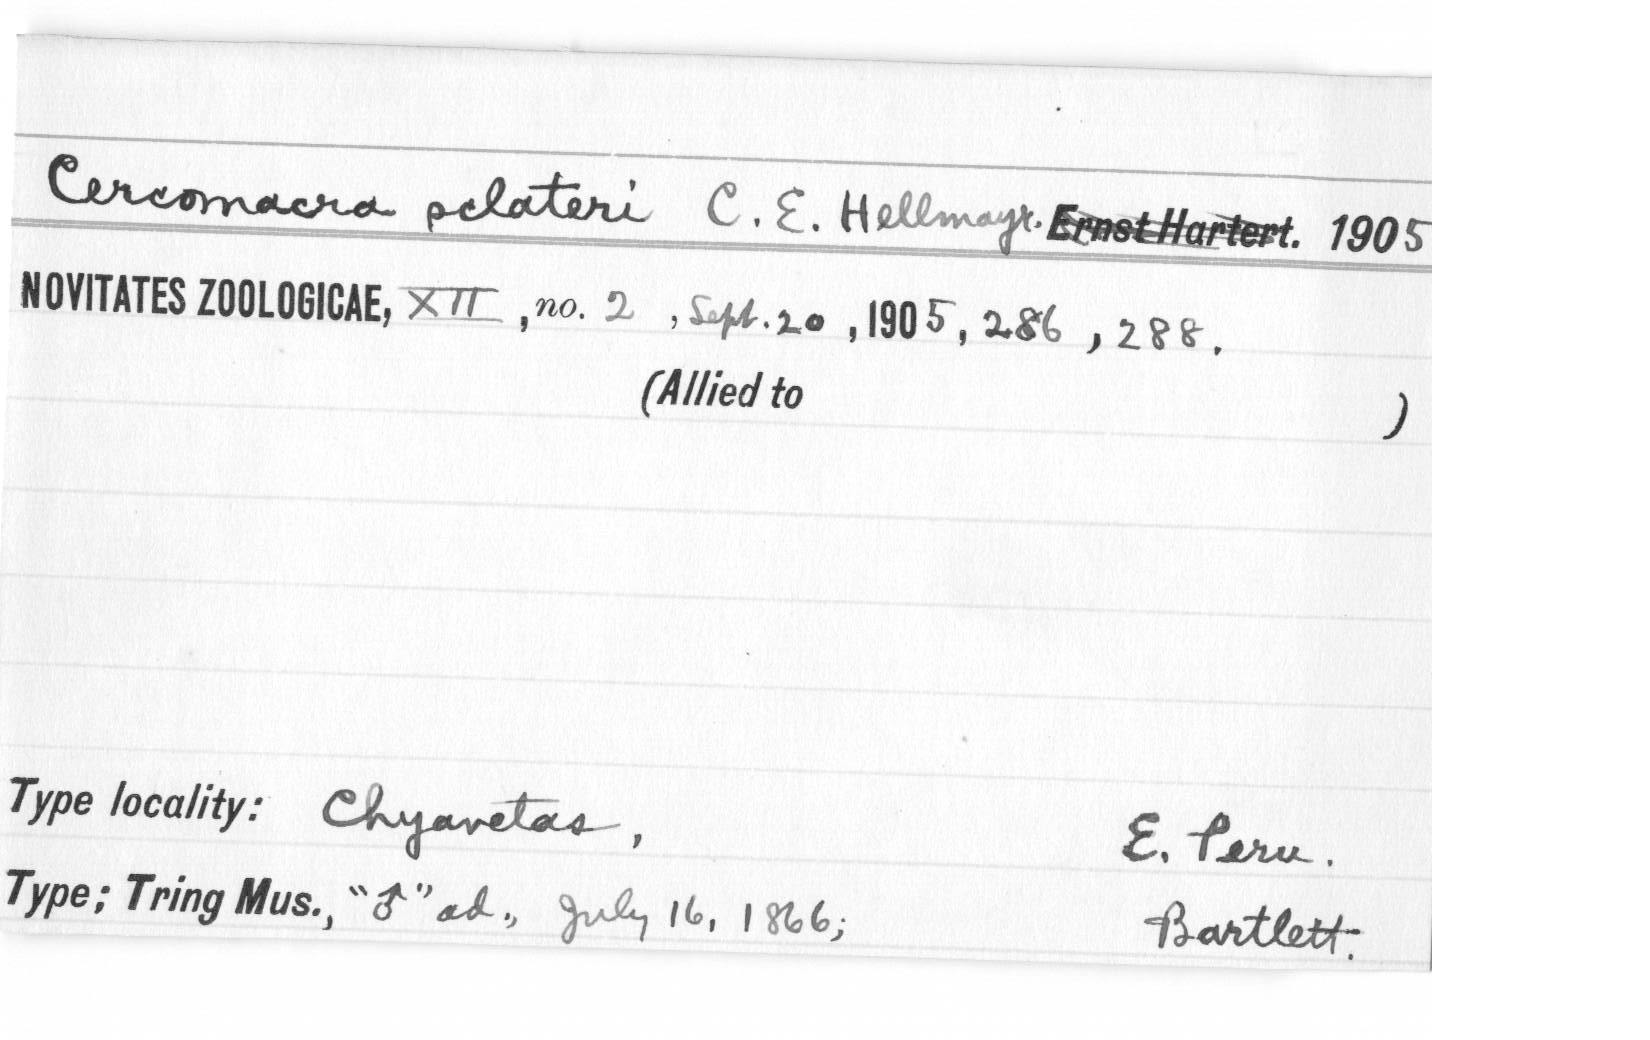 Cercomacra sclateri C. E. Hellmayr. Ernst Hartert. 1905
NOVITATES ZOOLOGICAE, XII, no. 2, Sept. 20, 1905, 286, 288.
(Allied to )
Type locality: Chyavetas, E. Peru.
Type; Tring Mus., "♂" ad., July 16, 1866; Bartlett.